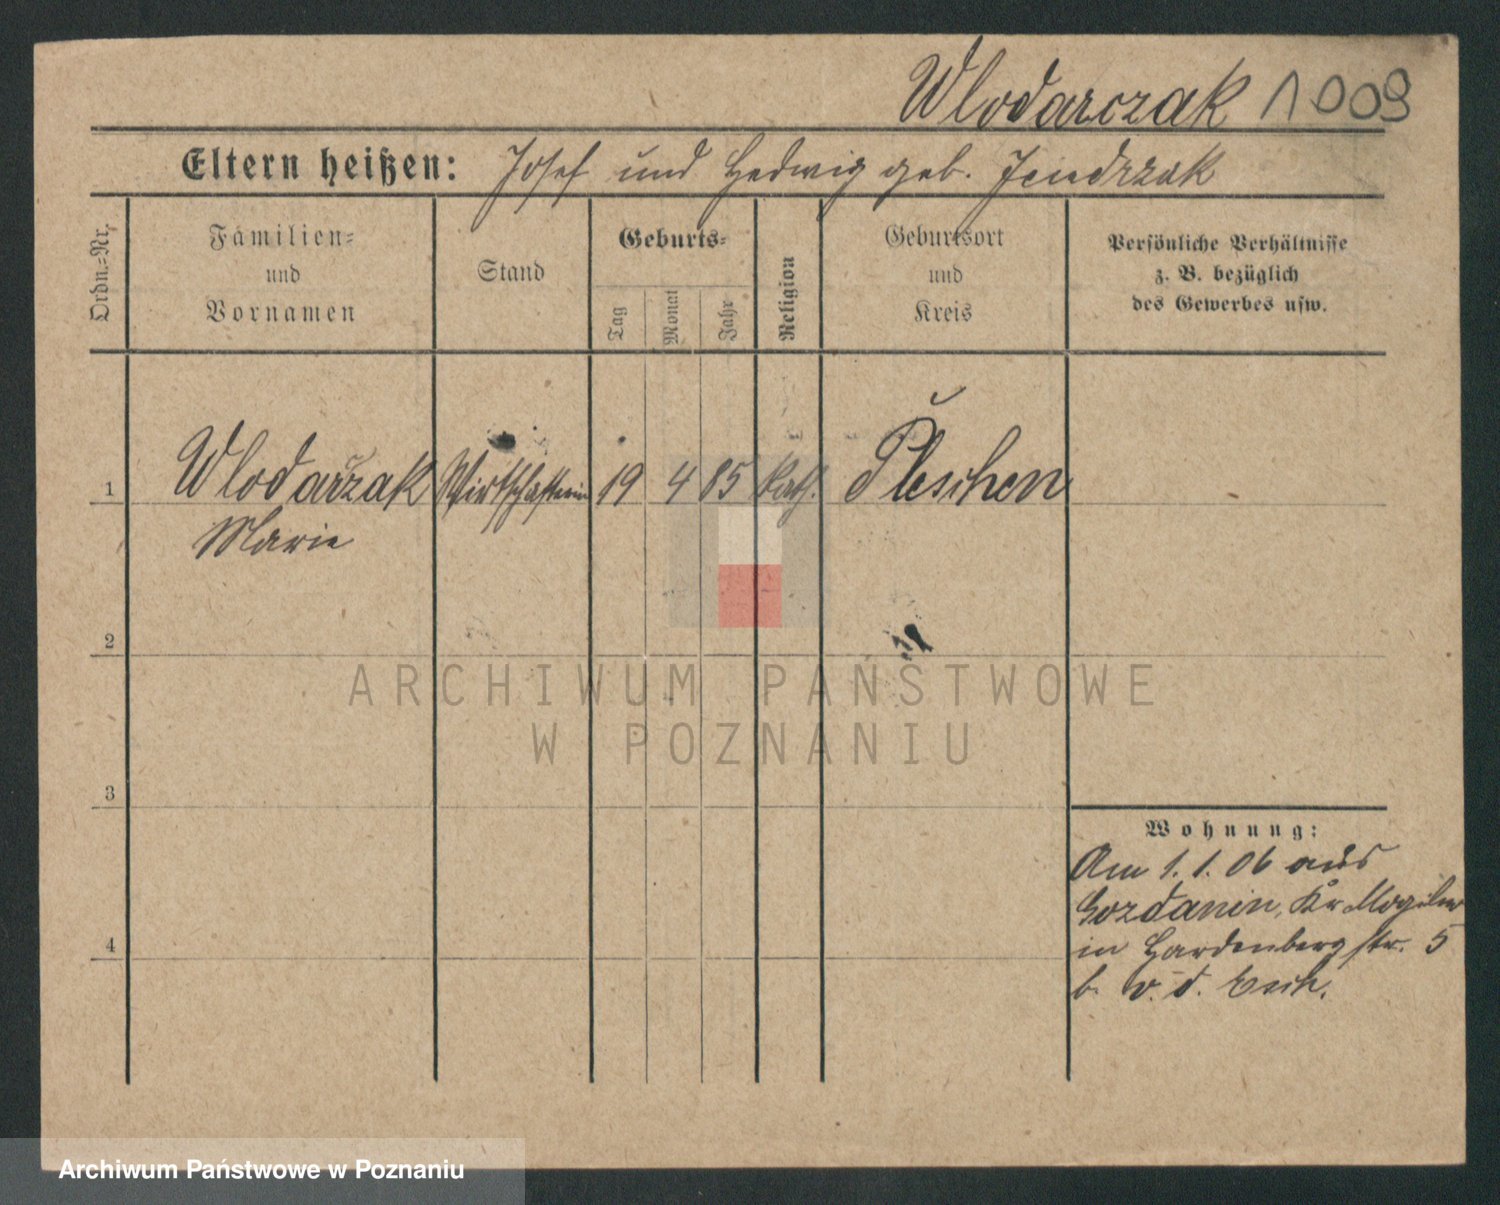 Wlodarczak 1009
Eltern heißen: Josef und Hedwig geb. Jendrzak
Ordn.-Nr.
Familien-
und
Vornamen
Stand
Geburts-
Tag
Monat
Jahr
Religion
Geburtsort
und
Kreis
Persönliche Verhältnisse
z. B. bezüglich
des Gewerbes usw.
1 Wlodarczak Wirtschafterin 19 4 85 kath. Pleschen
Marie
2
3
4
Wohnung:
Am 1.1.06 aus
Gozdanin, Kr. Mogilno
in Hardenbergstr. 5
b. v. d.
ARCHIWUM PAŃSTWOWE
W POZNANIU
Archiwum Państwowe w Poznaniu